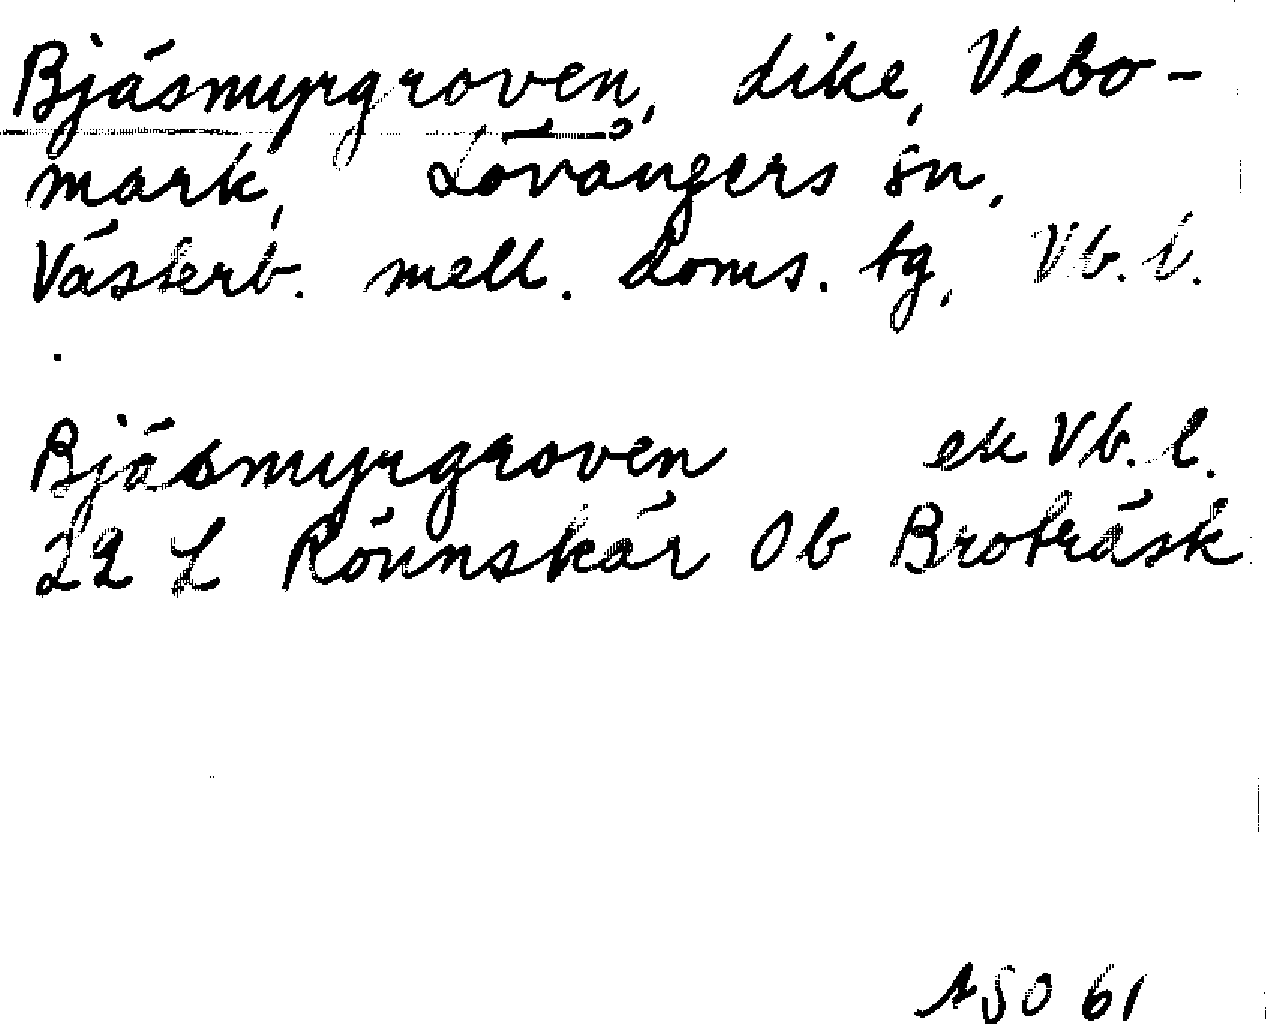 Bjäsmyrgroven, dike, Vebo-
mark, Lövångers sn,
Västerb. mell. doms. tg, Vb. l.
Bjäsmyrgroven ek Vb. l.
22 L Rönnskär Ob Broträsk
ASO 61